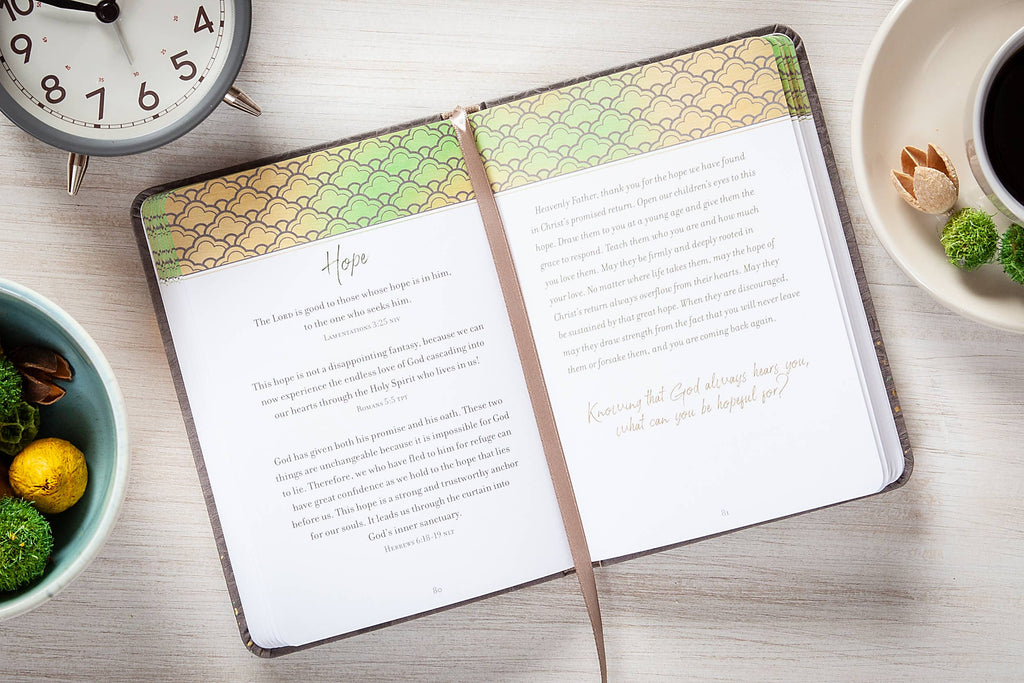 10
9
8
7
6
5
4
Hope
The LORD is good to those whose hope is in him,
to the one who seeks him.
LAMENTATIONS 3:25 NIV
This hope is not a disappointing fantasy, because we can
now experience the endless love of God cascading into
our hearts through the Holy Spirit who lives in us!
ROMANS 5:5 TPT
God has given both his promise and his oath. These two
things are unchangeable because it is impossible for God
to lie. Therefore, we who have fled to him for refuge can
have great confidence as we hold to the hope that lies
before us. This hope is a strong and trustworthy anchor
for our souls. It leads us through the curtain into
God's inner sanctuary.
HEBREWS 6:18-19 NLT
80
Heavenly Father, thank you for the hope we have found
in Christ's promised return. Open our children's eyes to this
hope. Draw them to you at a young age and give them the
grace to respond. Teach them who you are and how much
you love them. May they be firmly and deeply rooted in
your love. No matter where life takes them, may the hope of
Christ's return always overflow from their hearts. May they
be sustained by that great hope. When they are discouraged,
may they draw strength from the fact that you will never leave
them or forsake them, and you are coming back again.
Knowing that God always hears you,
what can you be hopeful for?
81